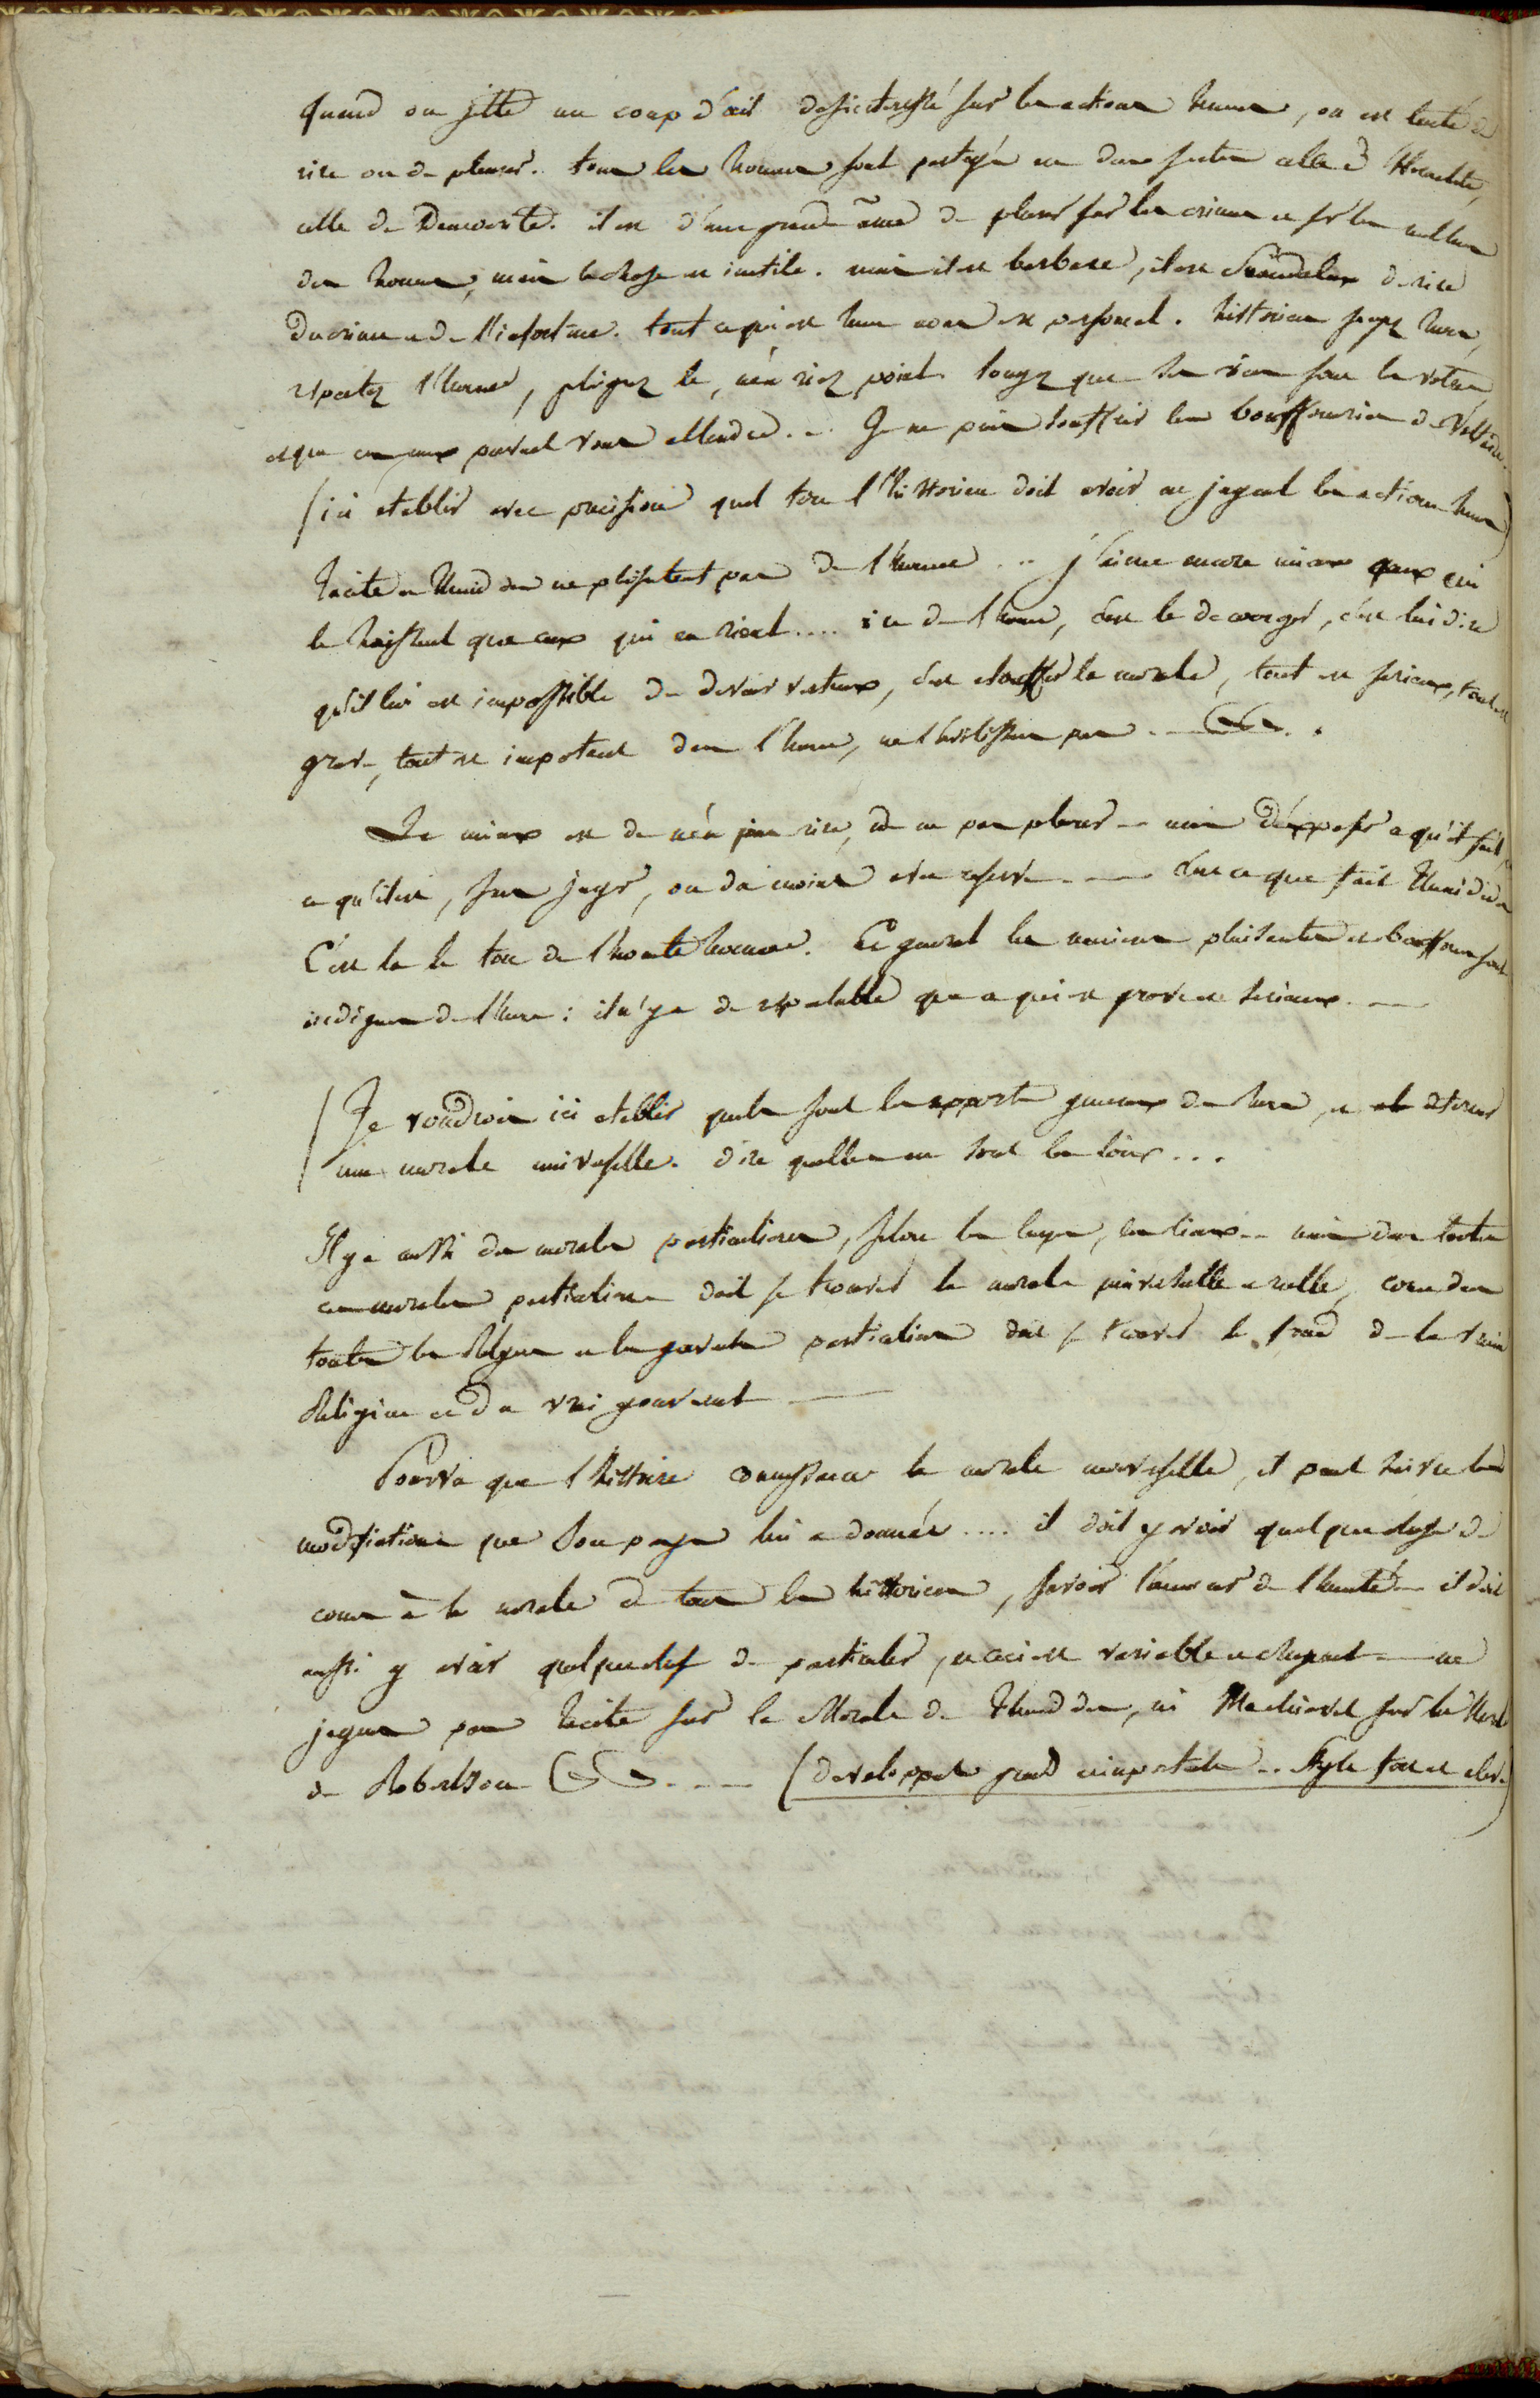 quand on jette un coup d'œil desinteressé sur les actions humes, on est tenté de
rire ou de pleurer. tous les hommes sont partagés en deux sectes celle d'Heraclite,
celle de Democrite. il est d'une grande âme de pleurer sur les crimes et sr les malheurs
des hommes, mais la chose est inutile. mais il est barbare, il est scandaleux de rire
du crime et de l'infortune. tout ce qui est hum nous est personel. historien soyez hum,
respectez l'homme, plaignez le, n'en riez point. songez que ses vices sont les votres
et que ces maux peuvent vous attendre... Je ne puis souffrir les bouffonneries de Voltaire.
(ici etablir avec precision quel ton l'historien doit avoir en jugeant les actions hum)
Tacite et Thucidides ne plaisantent pas de l'homme ... j'aime encore mieux ceux qui
le haissent que ceux qui en rient.... rire de l'homme, c'est le decourager, c'est lui dire
qu'il lui est impossible de devenir vertueux, c'est etouffer la morale, tout est serieux, tout est
grave, tout est important dans l'homme, ne l'avilissons pas ..
Le mieux est de n'en pas rire, et de ne pas pleurer -- mais d'exposer ce qu'il fait,
ce qu'il est, sans juger, ou du moins avec reserve --- c'est ce que fait Thucidide
C'est la le ton de l'honnete homme. En general les manieres plaisantes et bouffonnes sont
indignes de l'hume : il n'y a de respectable que ce qui est grave et serieux. --
(Je voudrois ici etablir quels sont les rapports generaux des hume, et determr
une morale universelle. dire quelles en sont les loix...
Il y a aussi des morales particulieres, selon les temps, les lieux -- mais dans toutes
ces morales particulieres doit se trouver la morale universelle et reelle, come dans
toutes les Religions et les gouvernts particuliers doit se trouver le fond de la vraie
Religion et du vrai gouvernement ---
Pourvu que l'histoire connoisse la morale universelle, il peut suivre les
modifications que son pays lui a données.... il doit y avoir quelque chose de
comun à la morale de tous les historiens, savoir l'amour de l'humanité -- il doit
aussi y avoir quelque chose de particulier, et ceci est variable et changeant -- ne
jugeons pas Tacite sur la Morale de Thucidides, ni Machiavel sur la Morale
de Robertson .... (developpet grand et important .. Style ton et eleve)